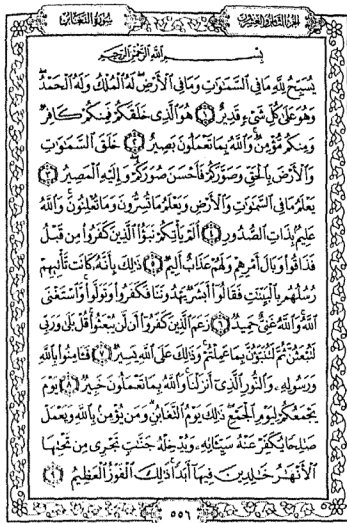 الجزء الثامن والعشرون
سورة التغابن
بسم الله الرحمن الرحيم
يُسَبِّحُ لِلَّهِ مَا فِي السَّمَٰوَٰتِ وَمَا فِي الْأَرْضِ لَهُ الْمُلْكُ وَلَهُ الْحَمْدُ
وَهُوَ عَلَىٰ كُلِّ شَيْءٍ قَدِيرٌ ١ هُوَ الَّذِي خَلَقَكُمْ فَمِنكُمْ كَافِرٌ
وَمِنكُم مُّؤْمِنٌ وَاللَّهُ بِمَا تَعْمَلُونَ بَصِيرٌ ٢ خَلَقَ السَّمَٰوَٰتِ
وَالْأَرْضَ بِالْحَقِّ وَصَوَّرَكُمْ فَأَحْسَنَ صُوَرَكُمْ وَإِلَيْهِ الْمَصِيرُ ٣
يَعْلَمُ مَا فِي السَّمَٰوَٰتِ وَالْأَرْضِ وَيَعْلَمُ مَا تُسِرُّونَ وَمَا تُعْلِنُونَ وَاللَّهُ
عَلِيمٌ بِذَاتِ الصُّدُورِ ٤ أَلَمْ يَأْتِكُمْ نَبَؤُا الَّذِينَ كَفَرُوا مِن قَبْلُ
فَذَاقُوا وَبَالَ أَمْرِهِمْ وَلَهُمْ عَذَابٌ أَلِيمٌ ٥ ذَٰلِكَ بِأَنَّهُ كَانَت تَّأْتِيهِمْ
رُسُلُهُم بِالْبَيِّنَٰتِ فَقَالُوا أَبَشَرٌ يَهْدُونَنَا فَكَفَرُوا وَتَوَلَّوا وَّاسْتَغْنَى
اللَّهُ وَاللَّهُ غَنِيٌّ حَمِيدٌ ٦ زَعَمَ الَّذِينَ كَفَرُوا أَن لَّن يُبْعَثُوا قُلْ بَلَىٰ وَرَبِّي
لَتُبْعَثُنَّ ثُمَّ لَتُنَبَّؤُنَّ بِمَا عَمِلْتُمْ وَذَٰلِكَ عَلَى اللَّهِ يَسِيرٌ ٧ فَـَٔامِنُوا بِاللَّهِ
وَرَسُولِهِ وَالنُّورِ الَّذِي أَنزَلْنَا وَاللَّهُ بِمَا تَعْمَلُونَ خَبِيرٌ ٨ يَوْمَ
يَجْمَعُكُمْ لِيَوْمِ الْجَمْعِ ذَٰلِكَ يَوْمُ التَّغَابُنِ وَمَن يُؤْمِن بِاللَّهِ وَيَعْمَلْ
صَٰلِحًا يُكَفِّرْ عَنْهُ سَيِّـَٔاتِهِ وَيُدْخِلْهُ جَنَّٰتٍ تَجْرِي مِن تَحْتِهَا
الْأَنْهَٰرُ خَٰلِدِينَ فِيهَا أَبَدًا ذَٰلِكَ الْفَوْزُ الْعَظِيمُ ٩
٥٥٦